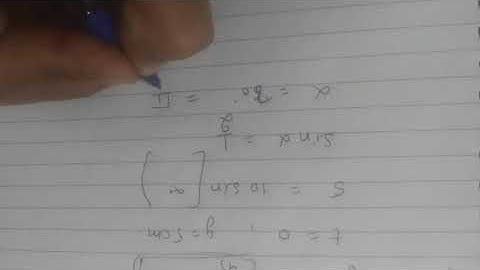 t = 0 , y = 5cm
5 = 10 sin [α)
sin α = 1/2
α = 30° = π